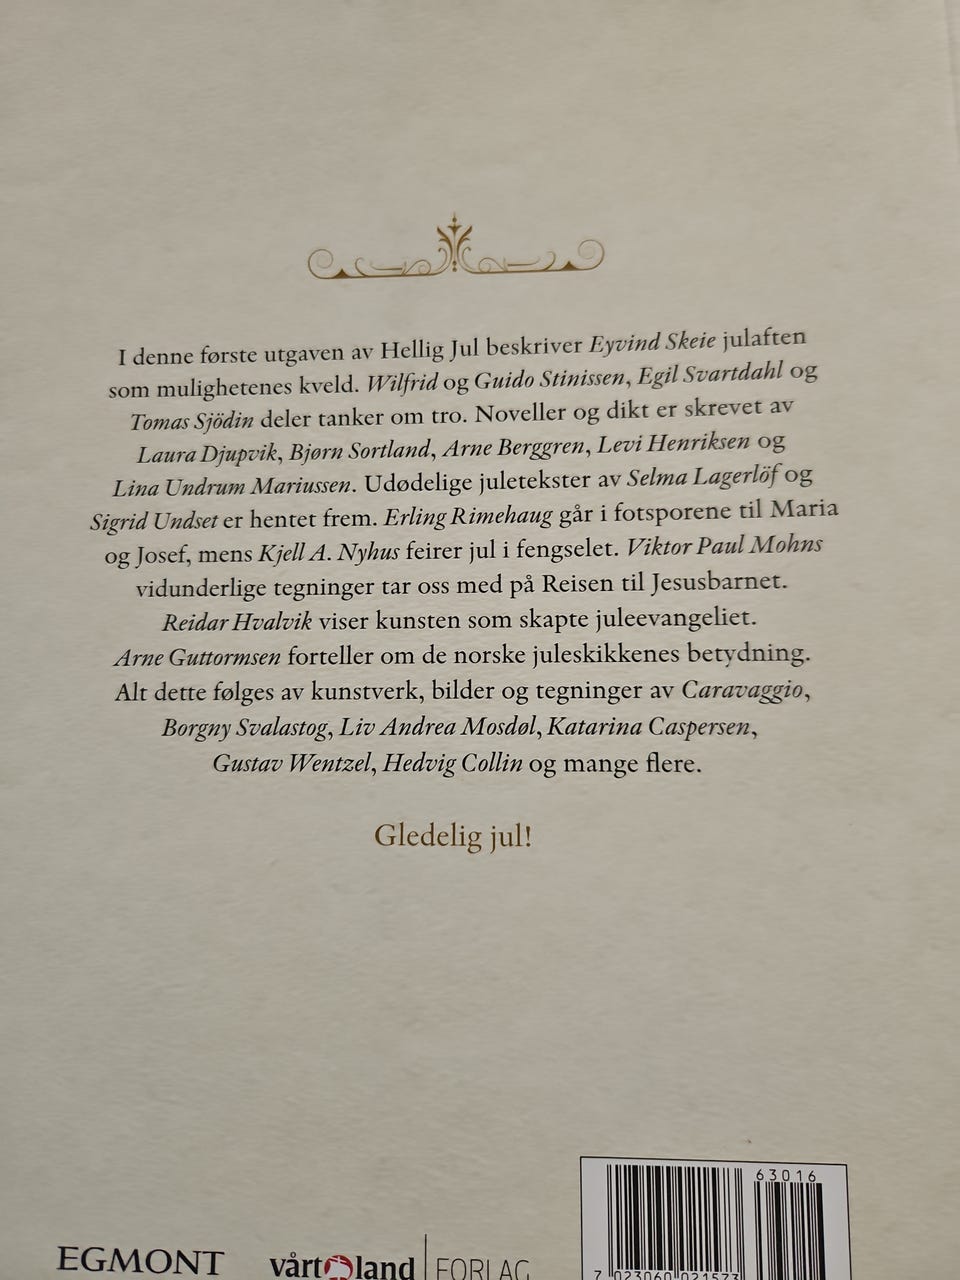 I denne første utgaven av Hellig Jul beskriver Eyvind Skeie julaften
som mulighetenes kveld. Wilfrid og Guido Stinissen, Egil Svartdahl og
Tomas Sjödin deler tanker om tro. Noveller og dikt er skrevet av
Laura Djupvik, Bjørn Sortland, Arne Berggren, Levi Henriksen og
Lina Undrum Mariussen. Udødelige juletekster av Selma Lagerlöf og
Sigrid Undset er hentet frem. Erling Rimehaug går i fotsporene til Maria
og Josef, mens Kjell A. Nyhus feirer jul i fengselet. Viktor Paul Mohns
vidunderlige tegninger tar oss med på Reisen til Jesusbarnet.
Reidar Hvalvik viser kunsten som skapte juleevangeliet.
Arne Guttormsen forteller om de norske juleskikkenes betydning.
Alt dette følges av kunstverk, bilder og tegninger av Caravaggio,
Borgny Svalastog, Liv Andrea Mosdøl, Katarina Caspersen,
Gustav Wentzel, Hedvig Collin og mange flere.
Gledelig jul!
63016
EGMONT vårt land FORLAG
7 023060 021573